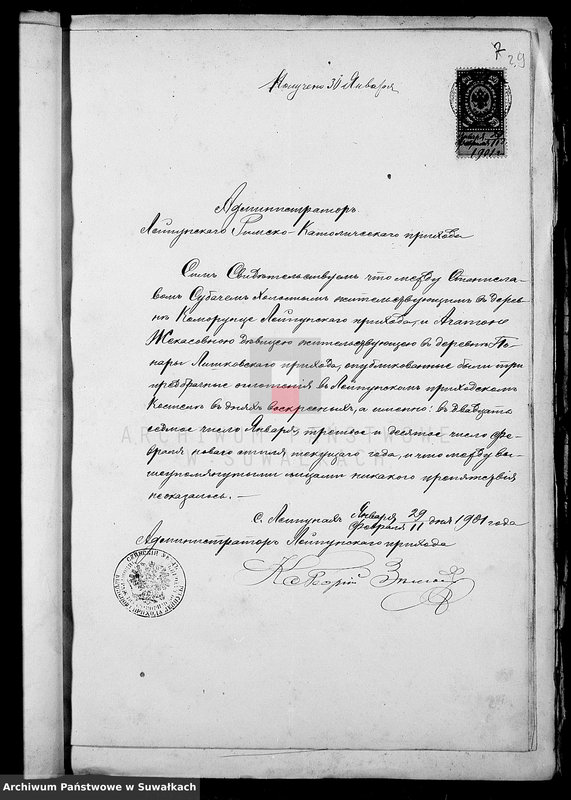 7
29
Получено 30 Января
1901 г
Администраторъ
Лейпунскаго Римско-Католическаго прихода
Симъ Свидѣтельствуетъ что между Станисла-
вомъ Субачемъ Холостымъ жительствующимъ въ дерев-
нѣ Лейпунскаго прихода, и Агатою
дѣвицею жительствующею въ деревнѣ
Лишковскаго прихода, опубликованные были три
предбрачные оглашенія въ Лейпунскомъ приходскомъ
Костелѣ въ дняхъ воскресныхъ, а именно: въ двадцать
седьмое число Января, третье и десятое число Фе-
враля новаго стиля текущаго года, и что между вы-
шеупомянутыми лицами никакого препятствія
не оказалось. —
с. Лейпуны Января 29 / Февраля 11 дня 1901 года
Администраторъ Лейпунскаго прихода
ARCHIWUM PAŃSTWOWE
W SUWAŁKACH
Archiwum Państwowe w Suwałkach